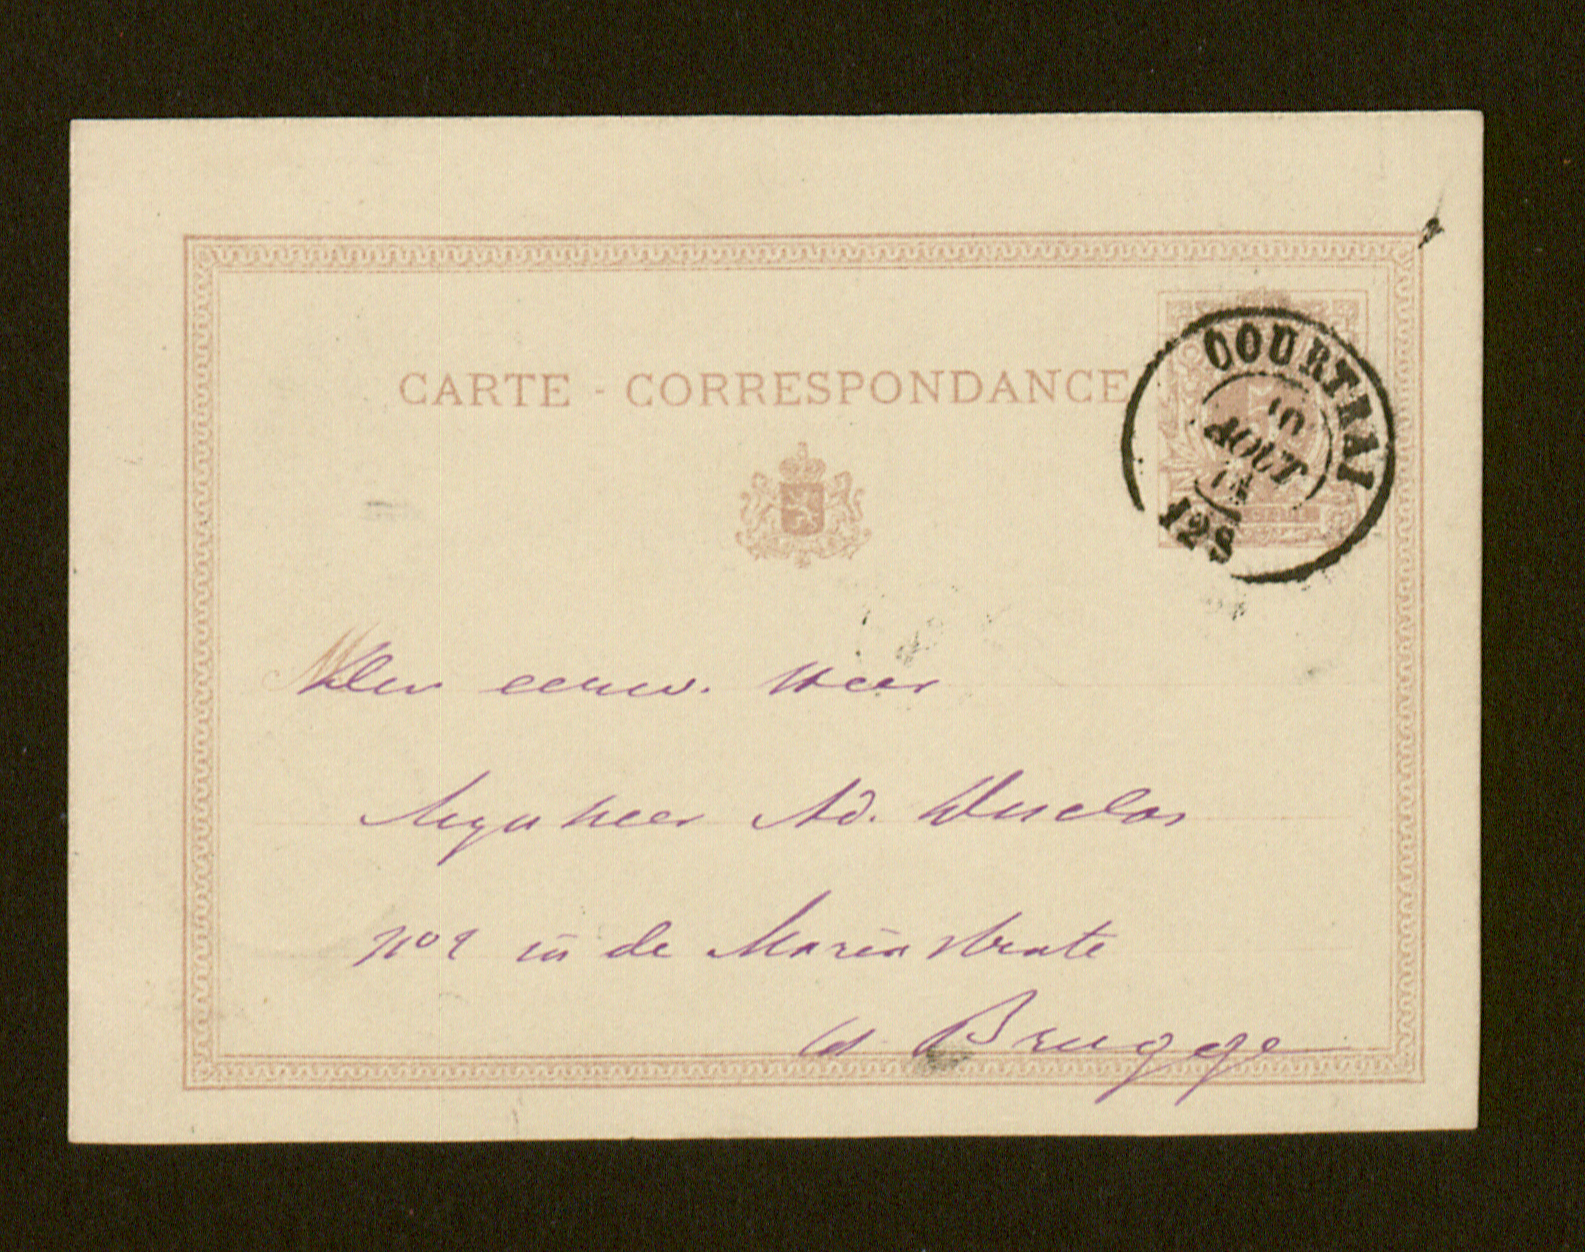 CARTE - CORRESPONDANCE
COURTRAI
10
AOUT
12S
Den eerw. Heer
Mynheer Ad. Duclos
nº 1 in de Mariastrate
Brugge